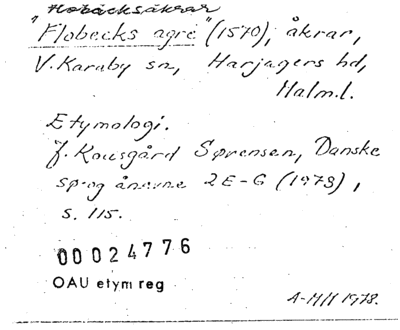 "Flobäcksåkrar
"Flobecks agre" (1570), åkrar,
V. Karaby sn, Harjagers hd,
Malm.l.
Etymologi.
J. Kousgård Sørensen, Danske
sø- og ånavne 2E-G (1973),
s. 115.
00024776
OAU etym reg
A-MH 1978.